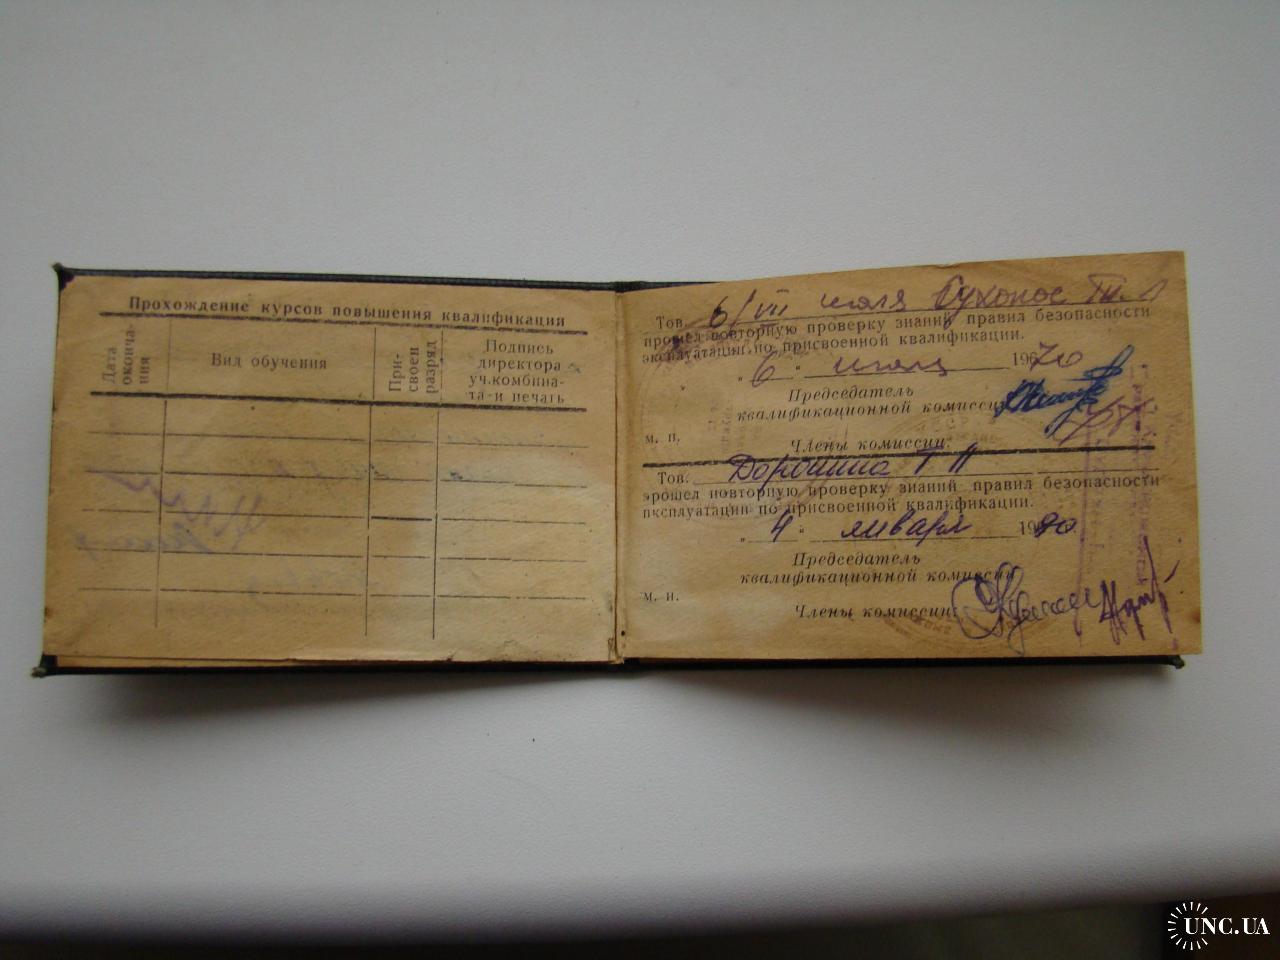 Прохождение курсов повышения квалификации
Дата оконча-ния
Вид обучения
При-своен разряд
Подпись
директора
уч.комбина-
та и печать
Тов. 6/VII июля Сухонос
прошел повторную проверку знаний правил безопасности
эксплуатации по присвоенной квалификации.
„6“ июля 1970
Председатель
квалификационной комиссии
м. п.
Члены комиссии:
Тов. Дорошина Т П
эрошел повторную проверку знаний правил безопасности
пксплуатации по присвоенной квалификации.
„4“ января
Председатель
квалификационной комиссии
м. п.
Члены комиссии:
UNC.UA